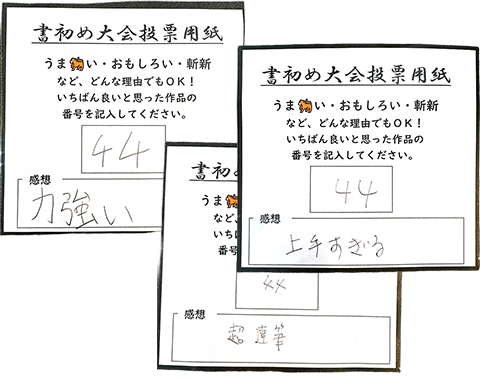 書初め大会投票用紙
うまい・おもしろい・斬新
など、どんな理由でもOK!
いちばん良いと思った作品の
番号を記入してください。
44
感想
力強い
書初め
うま
など、
いちば
番号
44
感想
超達筆
書初め大会投票用紙
うまい・おもしろい・斬新
など、どんな理由でもOK!
いちばん良いと思った作品の
番号を記入してください。
44
感想
上手すぎる